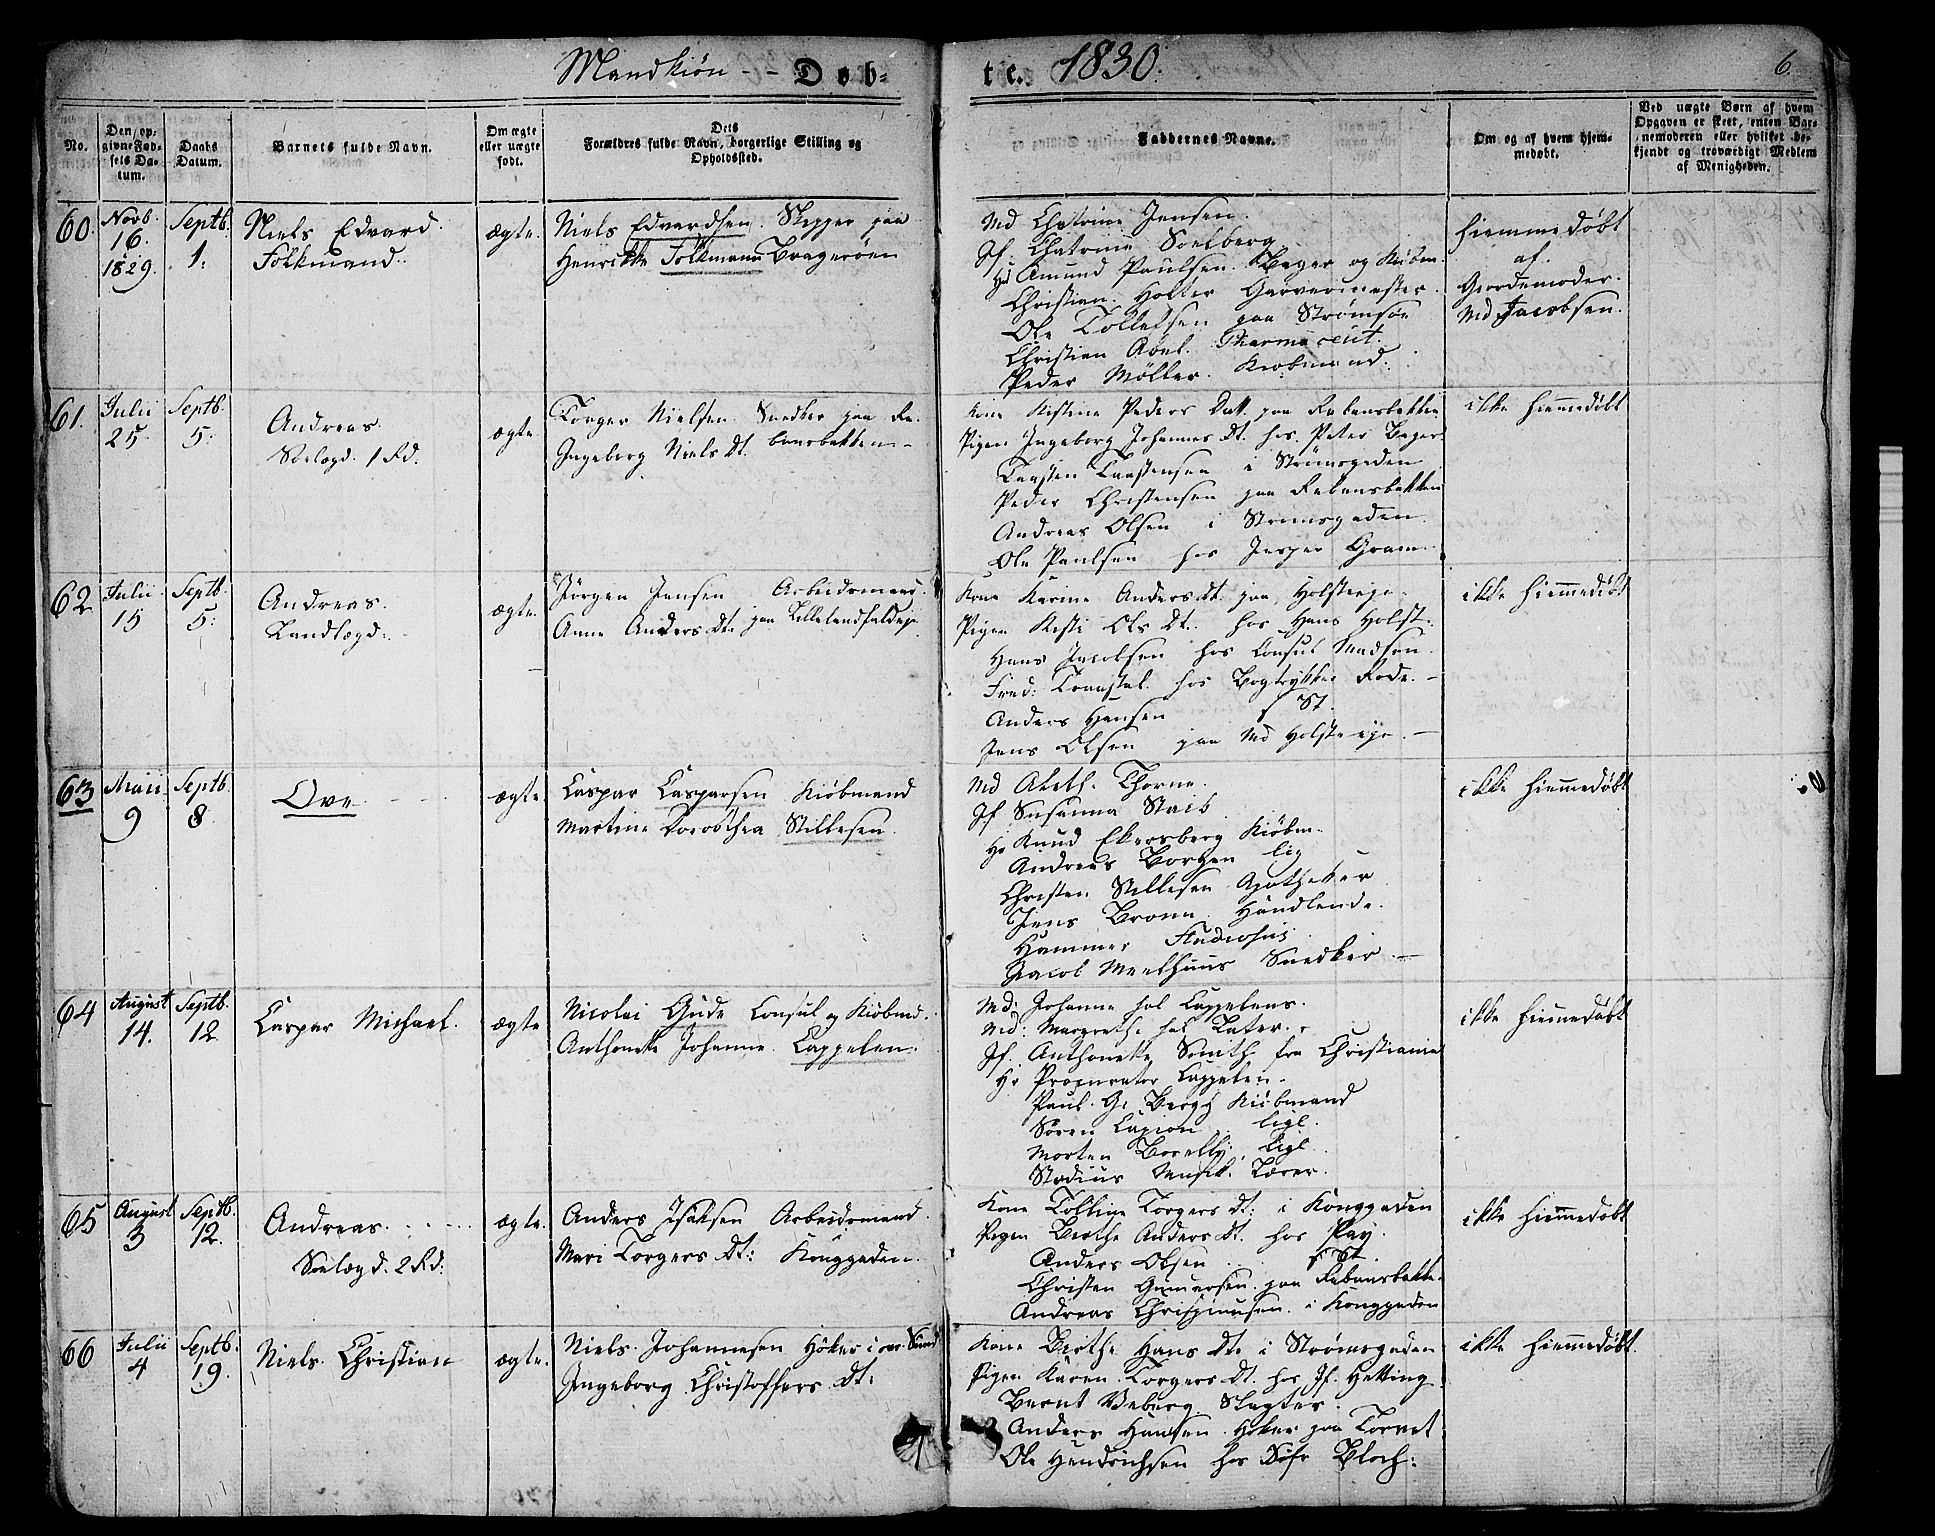 Mandkiön - - Døb-
te. 1830.
6.
No.
Den opgivne Fødsels Datum.
Daabs Datum.
Barnets fulde Navn.
Om ægte eller uægte født.
Dets
Forældres fulde Navn, borgerlige Stilling og
Opholdssted.
Faddernes Navne.
Om og af hvem hjem-
medøbt.
Ved uægte Børn af hvem
Opgaven er skeet, enten Bar-
nemoderen eller hvilket be-
kjendt og troværdigt Medlem
af Menigheden.
60. Novb. 16. 1829. Septb. 1.
Niels Edvard
Folkmand.
ægte.
Niels Edvardsen. Skipper paa
Henrikke Folkmann Bragerøen
Md Chatrine Jensen.
Jf. Chatrine Soelberg
Hr Amund Paulsen. Bager og Kiøbm.
Christian Holter Garvermester.
Ole Tollefsen paa Strømsøe
Christian Abel. Pharmaceut.
Peder Möller. Kiobmand.
hiemmedøbt
af.
Giordemoder.
Md Jacobsen.
61. Julii 25. Septb. 5.
Andreas.
Søelægd. 1 Rd.
ægte
Torger Nielsen. Snedker paa Re-
Ingeborg Niels Dt. bensbakken -
Kone Kistine Peders Datt. paa Rebensbakken
Pigen Ingeborg Johannes Dt. hos Peter Bager
Taasten Taastensen i Strømsgaden
Peder Christensen paa Rebensbakken
Andreas Olsen i Strømsgaden
Ole Paulsen hos Jesper Gram
ikke hiemmedøbt
62 Julii 15 Septb. 5.
Andreas.
Landlægd.
ægte.
Jörgen Jensen Arbeidsmand.
Anne Anders Dt. paa
Kone Karine Anders Dt. paa
Pigen Kisti Ols Dt. hos Hans Holst.
Hans Jacobsen hos Consul Madsen.
Fred: hos Bogtrykker Rode. -
Anders Hansen St.
Jens Olsen paa Md
ikke hiemmedøbt
63 Maii 9 Septb. 8.
Ove.
ægte
Caspar Casparsen Kiöbmand
Martine Dorothea Stillesen.
Md Aleth. Thorne.
Jf Susanna Staib.
Hr Knud Ekersberg Kiöbm.
Andreas Borgen lig
Christen Stillesen Apotheker
Jens Bronn. Handlende.
Hammer Studiosus
Jacob Meelhuus Snedker. -
ikke hiemmedøbt
64 August 14. Septb. 12
Caspar Michael.
ægte
Nicolai Gude Consul og Kiöbmd.
Anthonette Johanne Cappelen.
Md. Johanne sal Cappelens.
Md: Margrethe sal
Jf. Anthonette Smith fra Christiania
Hr Procurator Cappelen.
Paul. G. Bergh Kiöbmand
Sören ligl.
Morten ligl
Stadius Musik Lærer.
ikke hiemmedøbt
65 August 3 Septb. 12.
Andreas.
Søelægd. 2 Rd:
ægte.
Anders Isaksen Arbeidsmand.
Mari Torgers Dt: Konggaden.
Kone Tolline Torgers Dt: i Konggaden
Pigen Birthe Anders Dt. hos Pay.
Anders Olsen St.
Christen Gunersen paa Rebensbakke
Andreas i Konggaden
ikke hiemmedøbt
66 Julii 4 Septb. 19.
Niels Christian
ægte.
Niels. Johannesen Høker i
Ingeborg Christoffers Dt:
Kone Birthe Hans Dt. i Strømsgaden
Pigen Karen Torgers Dt. hos Jf. Hetting
Bernt Slagter.
Anders Hansen Høker paa Torvet
Ole Hendrichsen hos Bloch.
ikke hiemmedøbt.